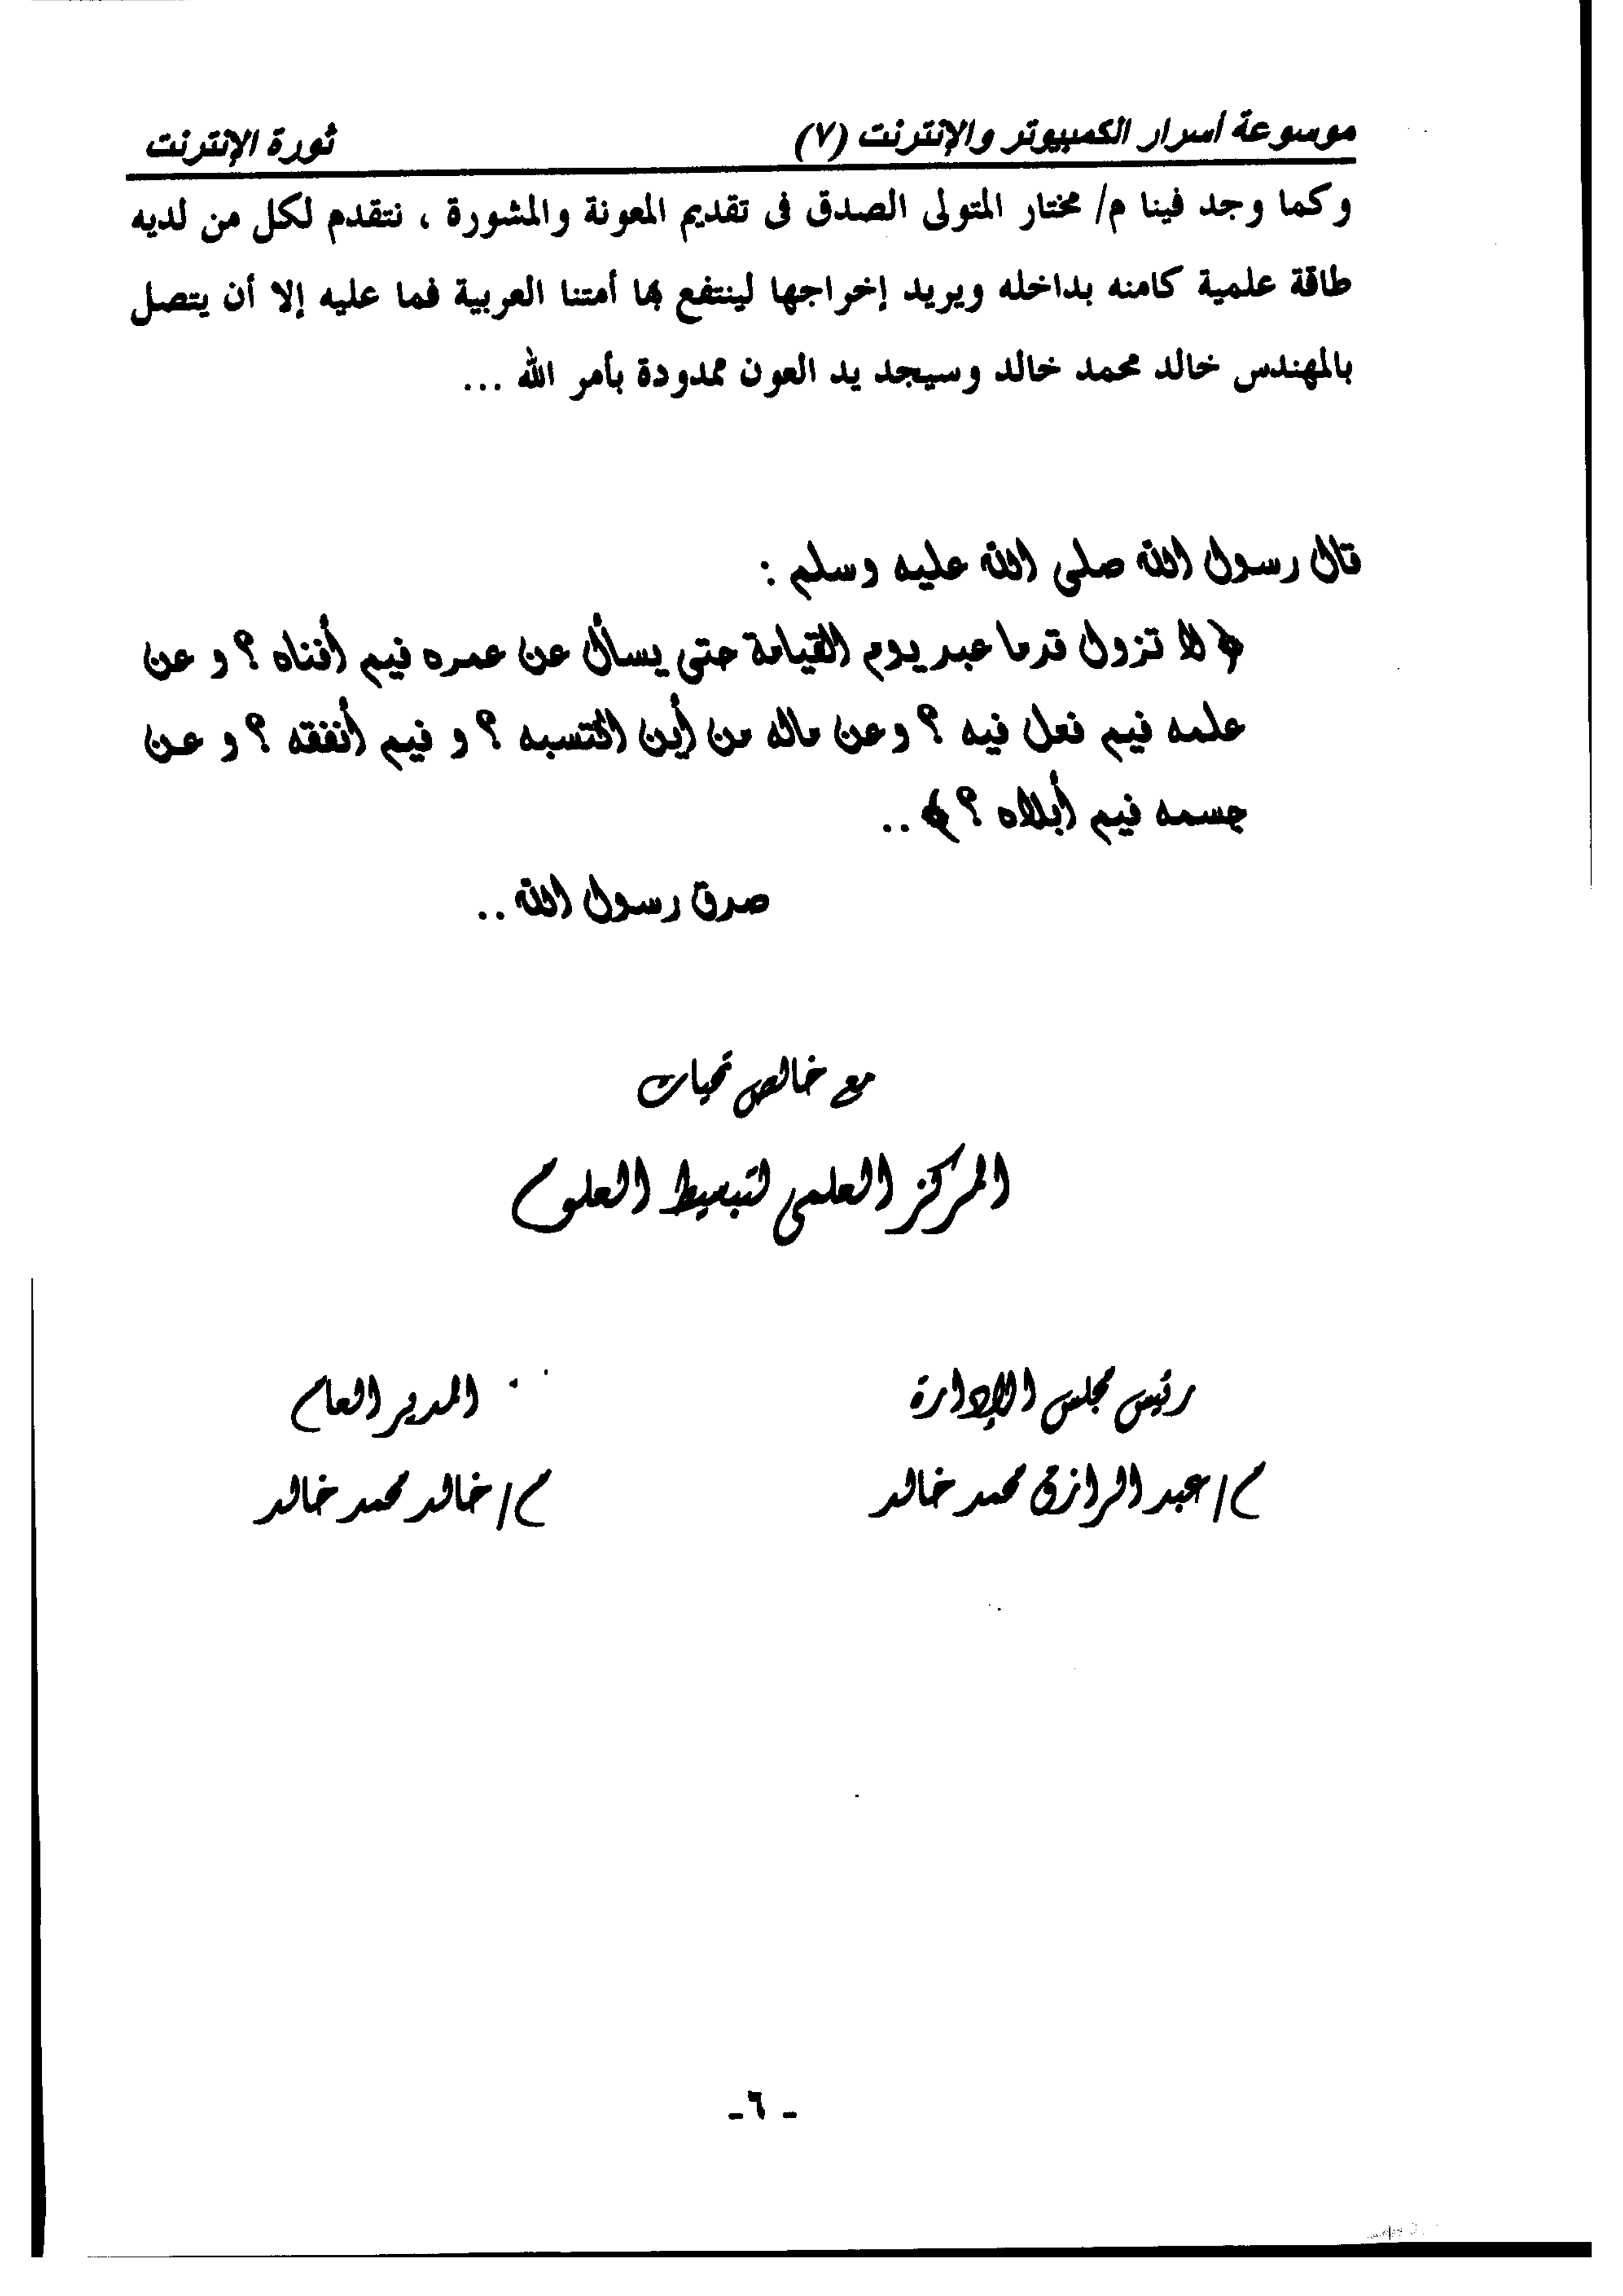 موسوعة أسرار الكمبيوتر والإنترنت (٧) ثورة الإنترنت
وكما وجد فينا م/ مختار المتولى الصدق فى تقديم المعونة والمشورة ، نتقدم لكل من لديه
طاقة علمية كامنه بداخله ويريد إخراجها لينتفع بها أمتنا العربية فما عليه إلا أن يتصل
بالمهندس خالد محمد خالد وسيجد يد العون ممدودة بأمر الله ...
قال رسول الله صلى الله عليه وسلم :
﴿ لا تزول قدما عبد يوم القيامة حتى يسأل عن عمره فيم أفناه ؟ و عن
علمه فيم فعل فيه ؟ وعن ماله من أين اكتسبه ؟ و فيم أنفقه ؟ و عن
جسمه فيم أبلاه ؟ ﴾ ..
صدق رسول الله ..
مع خالص تحيات
المركز العلمى لتبسيط العلوم
رئيس مجلس الإدارة المدير العام
م/ عبد الرازق محمد خالد م/ خالد محمد خالد
- ٦-